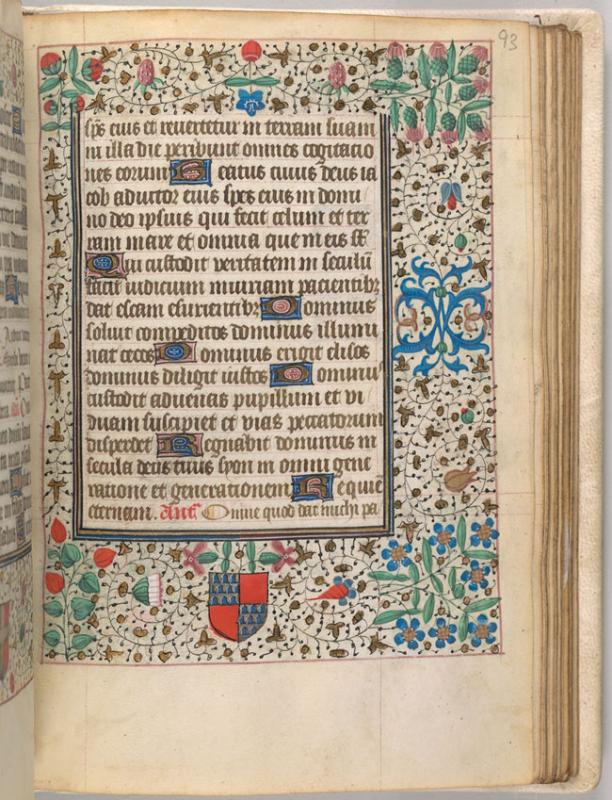 93
sps̄ eius et reuertetur in terram suam
in illa die peribunt omnes cogitacio
nes eorum Beatus cuius deus ia
cob adiutor eius spes eius in domi
no deo ipsius qui fecit celum et ter
ram mare et omnia que in eis st̄
Qui custodit veritatem in seculū
facit iudicium iniuriam pacientibꝫ
dat escam esurientibꝫ Dominus
soluit compeditos dominus illumi
nat cecos Dominus erigit elisos
dominus diligit iustos Dominus
custodit aduenas pupillum et vi
duam suscipiet et vias peccatorum
disperdet Regnabit dominus in
secula deus tuus syon in omni gene
ratione et generationem Requiē
eternam. Anā Omne quod dat michi pa